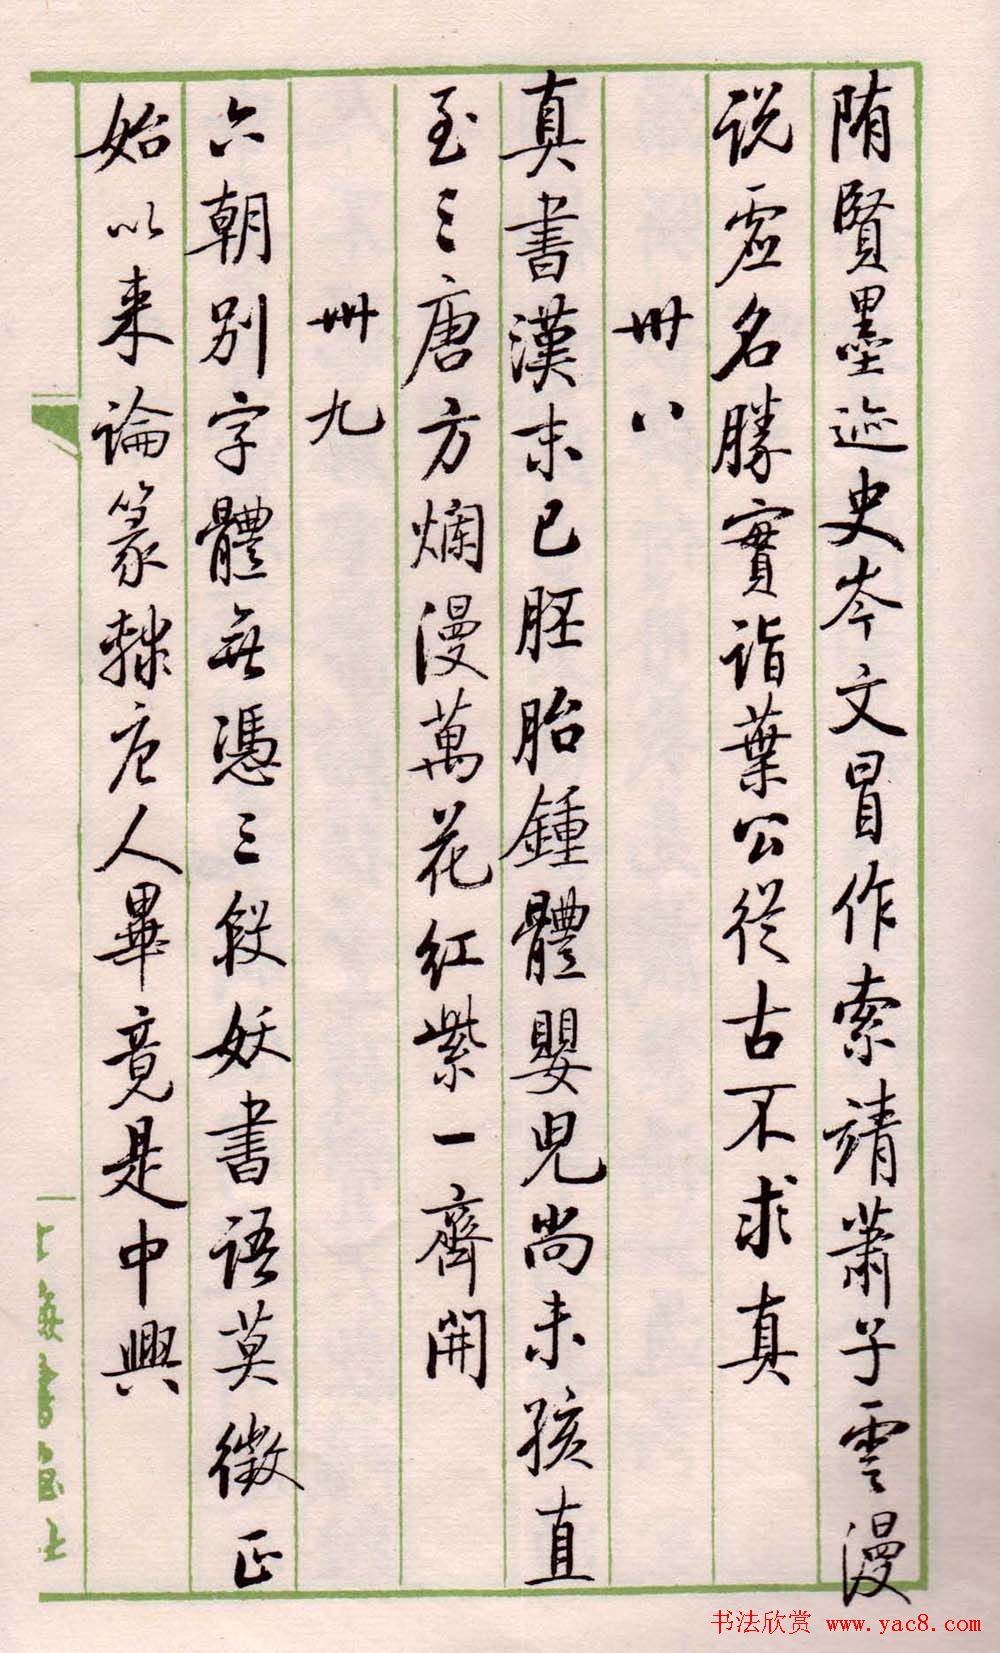 隋賢墨迹史岑文冒作索靖蕭子雲漫
说虚名勝實詣葉公從古不求真
卌八
真書漢末已胚胎鍾體嬰兒尚未孩直
至三唐方爛漫萬花紅紫一齊開
卌九
六朝别字體無憑三段妖書語莫徵正
始以来論篆隸唐人畢竟是中興
书法欣赏 www.yac8.com